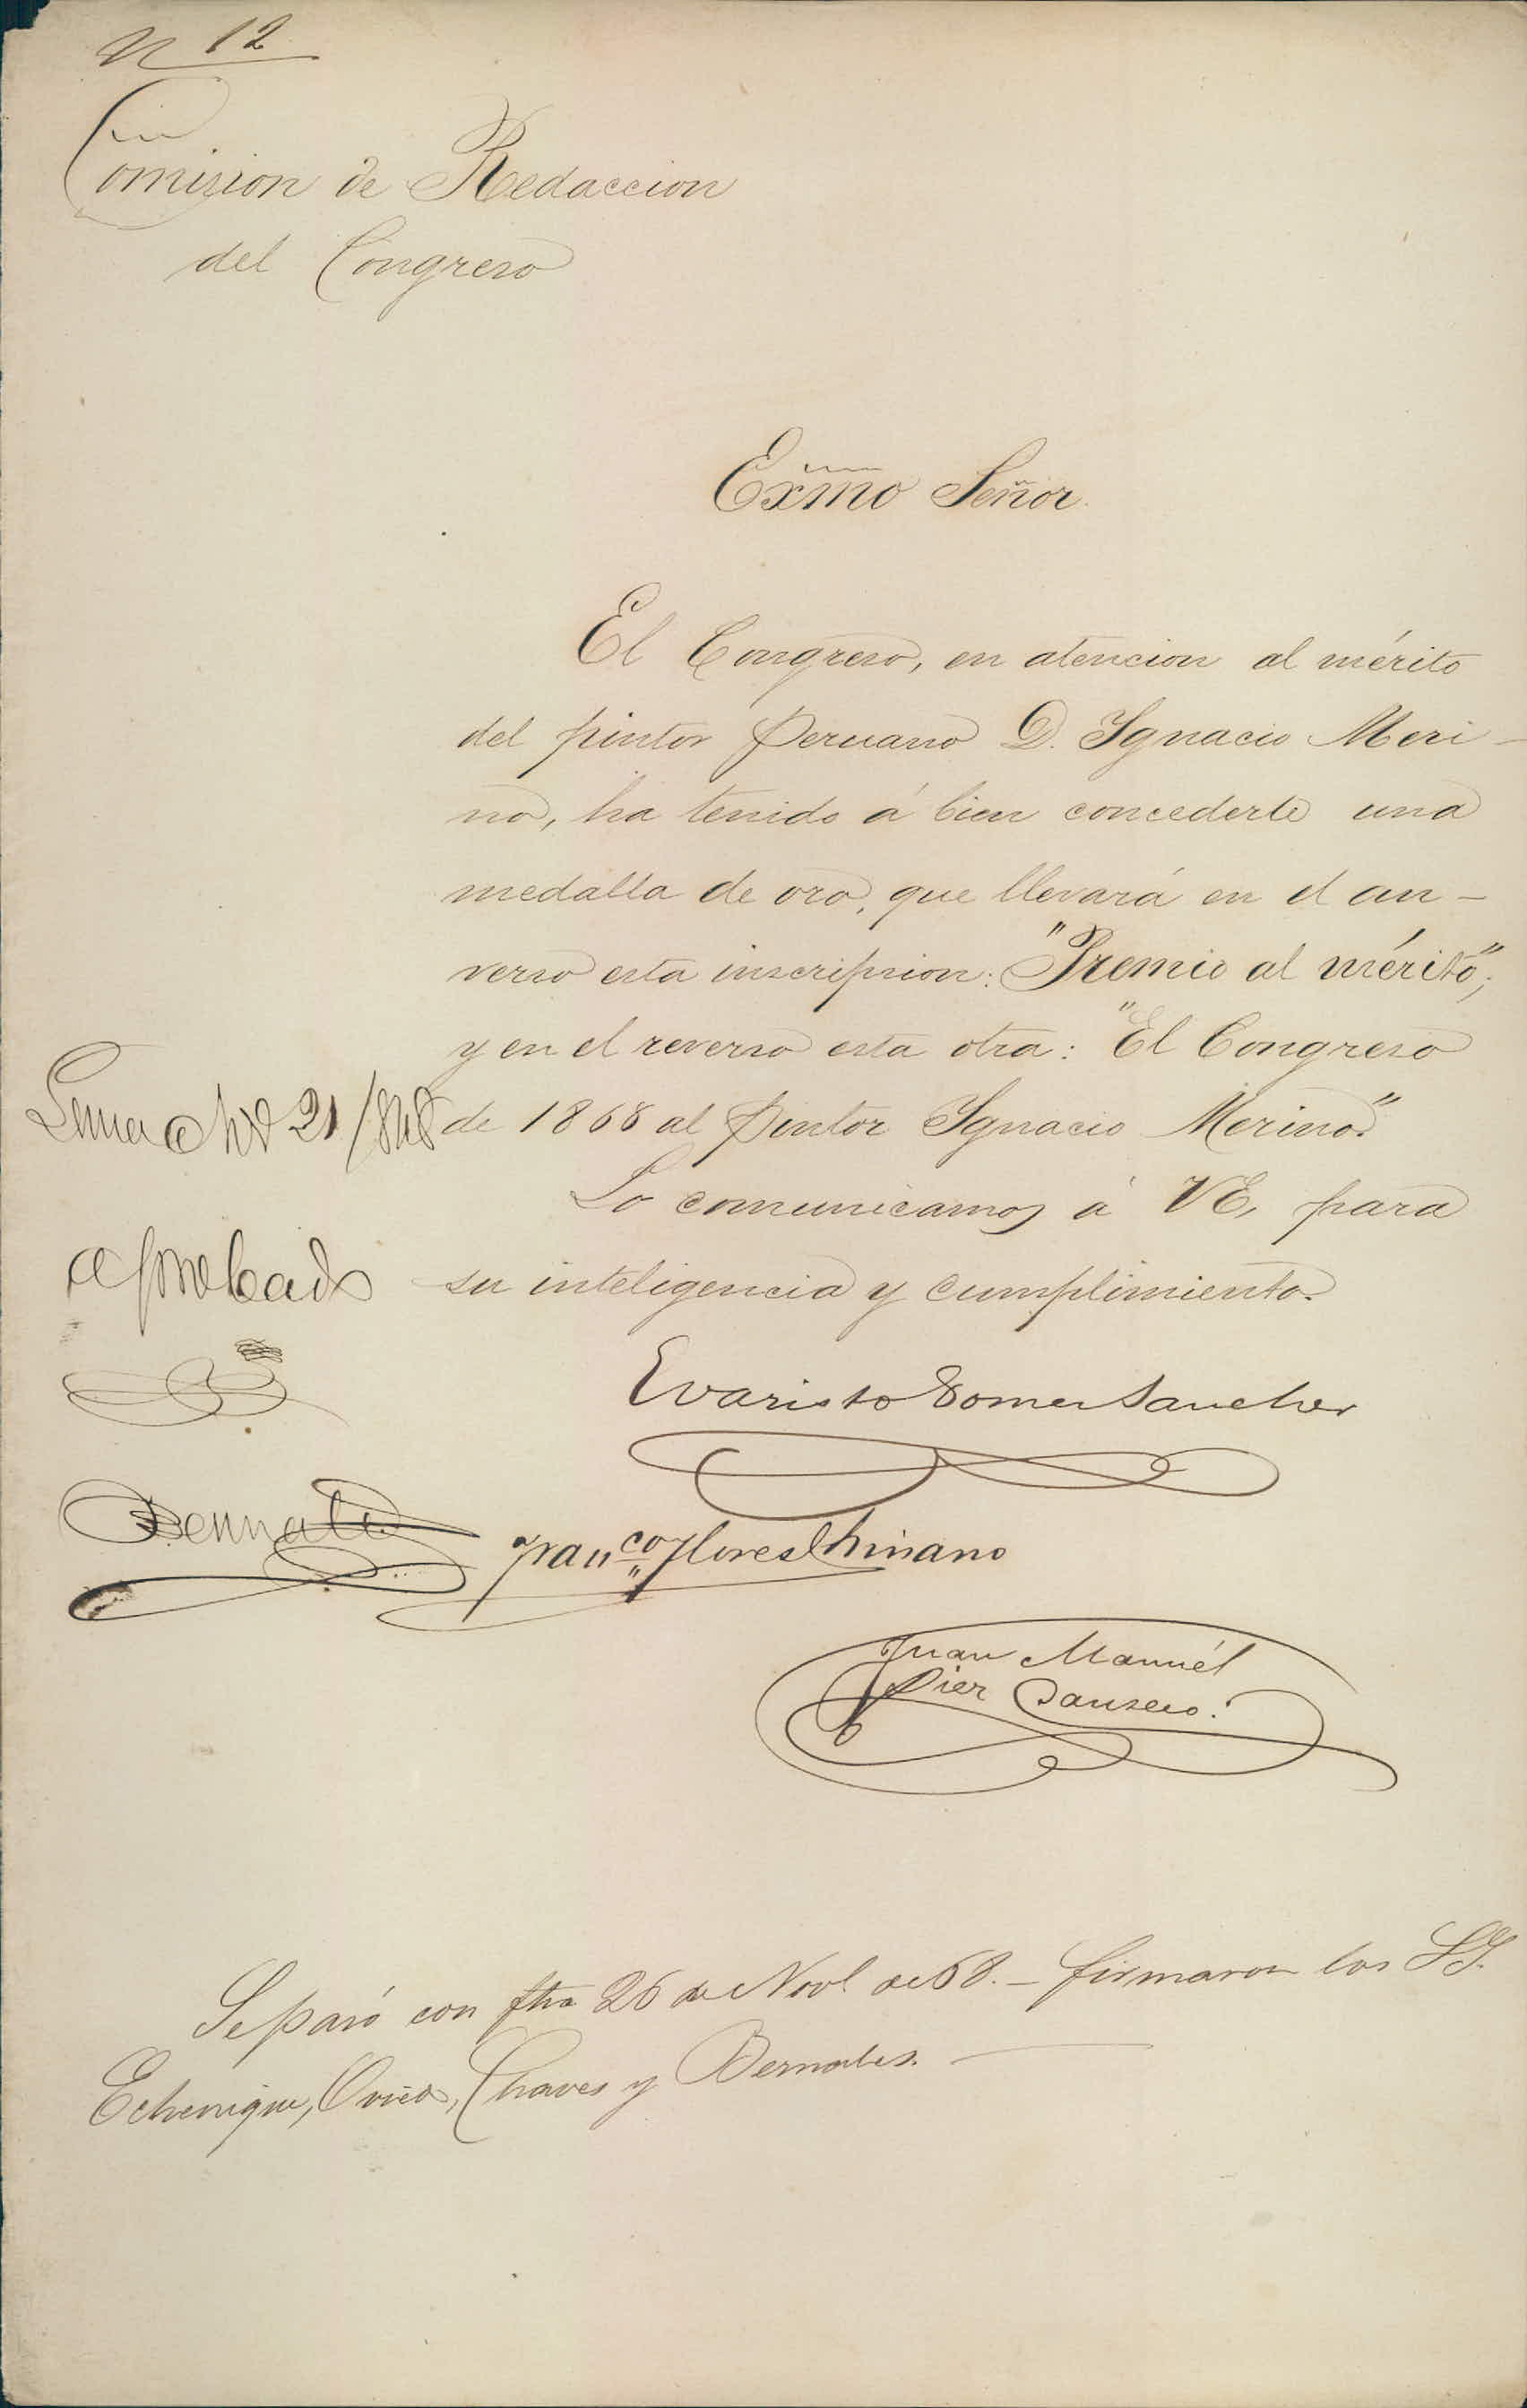 N 12
Comision de Redaccion
del Congreso
Exmo Señor.
El Congreso, en atencion al mérito
del pintor Peruano D. Ygnacio Meri-
no, ha tenido á bien concederle una
medalla de oro, que llevará en el an-
verso esta inscripsion: "Premio al mérito";
y en el reverso esta otra: "El Congreso
de 1868 al Pintor Ygnacio Merino."
Lo comunicamos á VE, para
su inteligencia y cumplimiento.
Lima 21/868
aprobado
Evaristo Gomez Sanchez
Bernales
Franco Flores Chinano
Juan Manuél
Pier Canseco.
Se pasó con fha 26 de Novl de 68. - firmaron los SS.
Echenique, Oviedo, Chaves y Bernales.